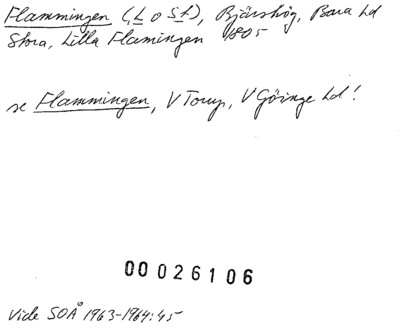 Flammingen (, L o St), Bjärshög, Bara hd
Stora, Lilla Flamingen 1805
se Flammingen, V Torup, V Göinge hd!
00026106
Vide SOÅ 1963-1964:45